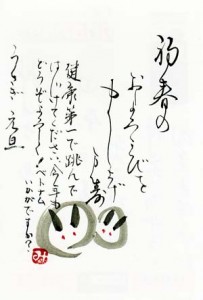 初春の
およろこびを
もうしあげ
ます
健康第一で跳んで
はじけてください今年も
どうぞよろしく！ベトナム
いかがですか？
うさぎ 元旦
み